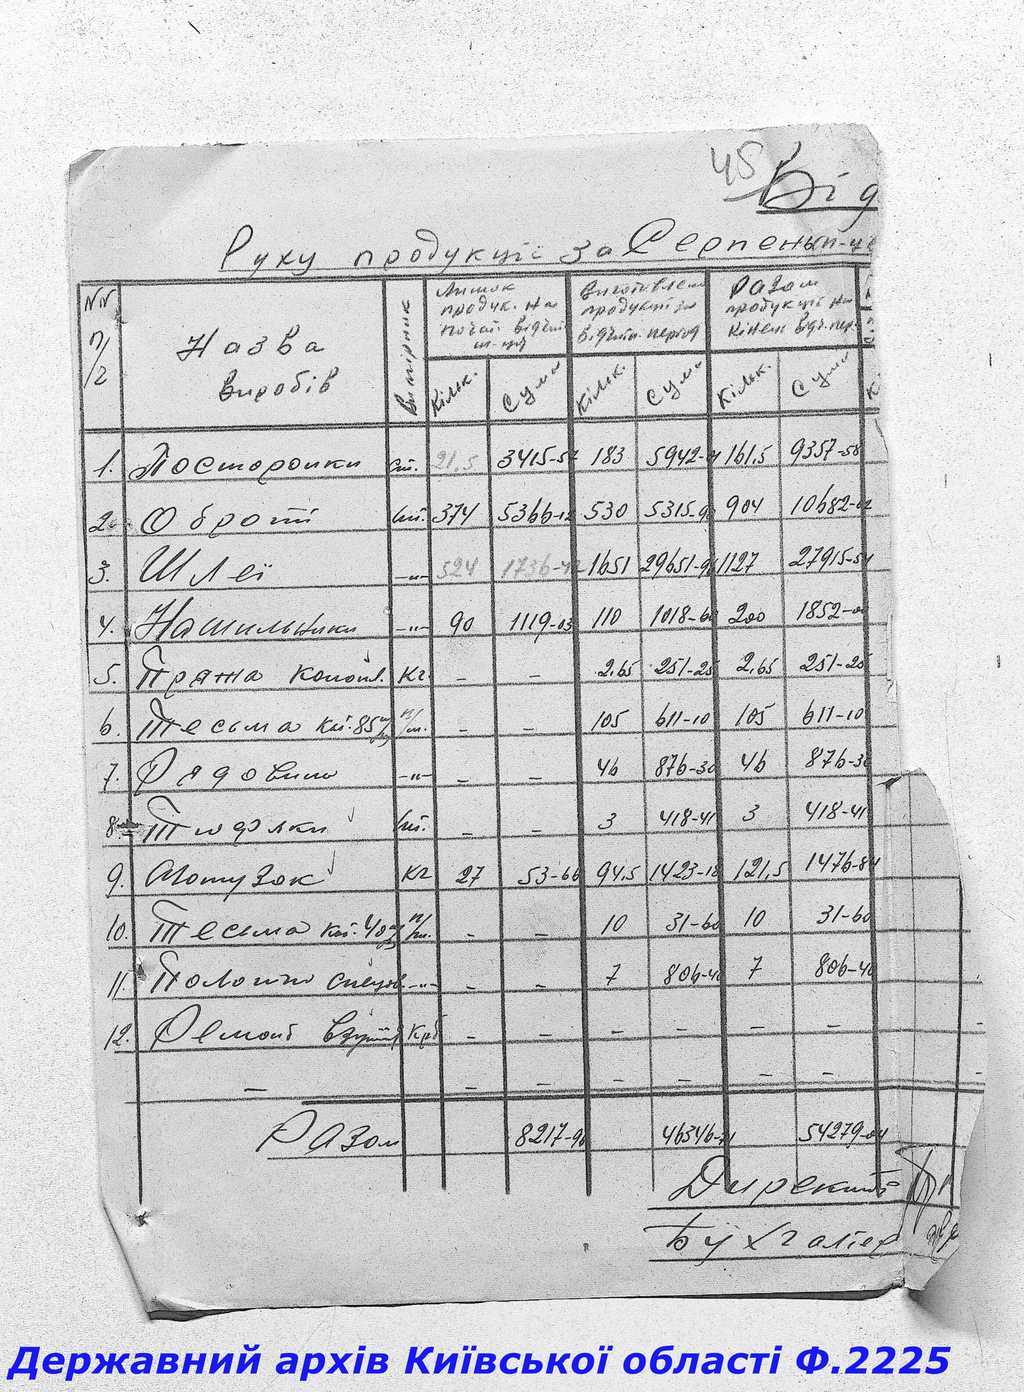 45
Від
Руху продукції за Серпень м-ць
NN п/г
Назва виробів
Вимірник
Лишок продук. на почат. відчит. м-ця
Виготовлен продукції за відчитн. період
Разом продукції на кінец відч. пер.
Кільк. Сума Кільк. Сума Кільк. Сума
1. Посторонки шт. 21,5 3415-57 183 5942-01 161,5 9357-58
2. Оброті шт. 374 5366-12 530 5315-90 904 10682-02
3. Шлеї -"- 524 1736-42 1651 29651-96 1127 27915-54
4. Нашильники -"- 90 1119-03 110 1018-60 200 1852-00
5. Пряжа конопл. Кг - - 2,65 251-25 2,65 251-25
6. Тесьма п/м. - - 105 611-10 105 611-10
7. Рядовина -"- - - 46 876-30 46 876-30
8. шт. - - 3 418-41 3 418-41
9. Мотузок Кг 27 53-66 94,5 1423-18 121,5 1476-84
10. Тесьма п/м. - - 10 31-60 10 31-60
11. Полотно -"- - - 7 806-40 7 806-40
12. Ремонт взуття Крб - - - - - -
- - - - - - -
Разом 8217-90 46346-71 54279-04
Директор
Бухгалтер
Державний архів Київської області Ф.2225